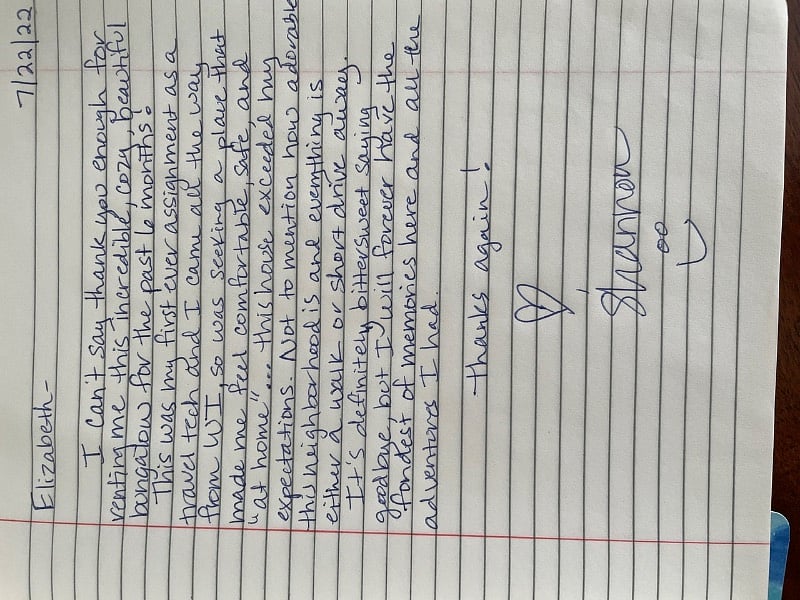 7/22/22
Elizabeth-
I can't say thank you enough for
renting me this incredible, cozy, beautiful
bungalow for the past 6 months!
This was my first ever assignment as a
travel tech and I came all the way
from WI, so was seeking a place that
made me feel comfortable, safe, and
"at home"... this house exceeded my
expectations. Not to mention how adorable
this neighborhood is and everything is
either a walk or short drive away.
It's definitely bittersweet saying
goodbye, but I will forever have the
fondest of memories here and all the
adventures I had.
Thanks again!
Shannon